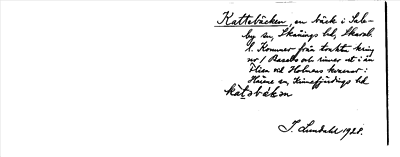 Kattebäcken, en bäck i Sale-
by sn, Skånings hd, Skarab.
l. Kommer från trakten kring
nr 1 och rinner ut i ån
Flian vid Holmens kvarnar i
Härene sn, Kinnefjärdings hd
katəbækən
J. Lundahl 1928.